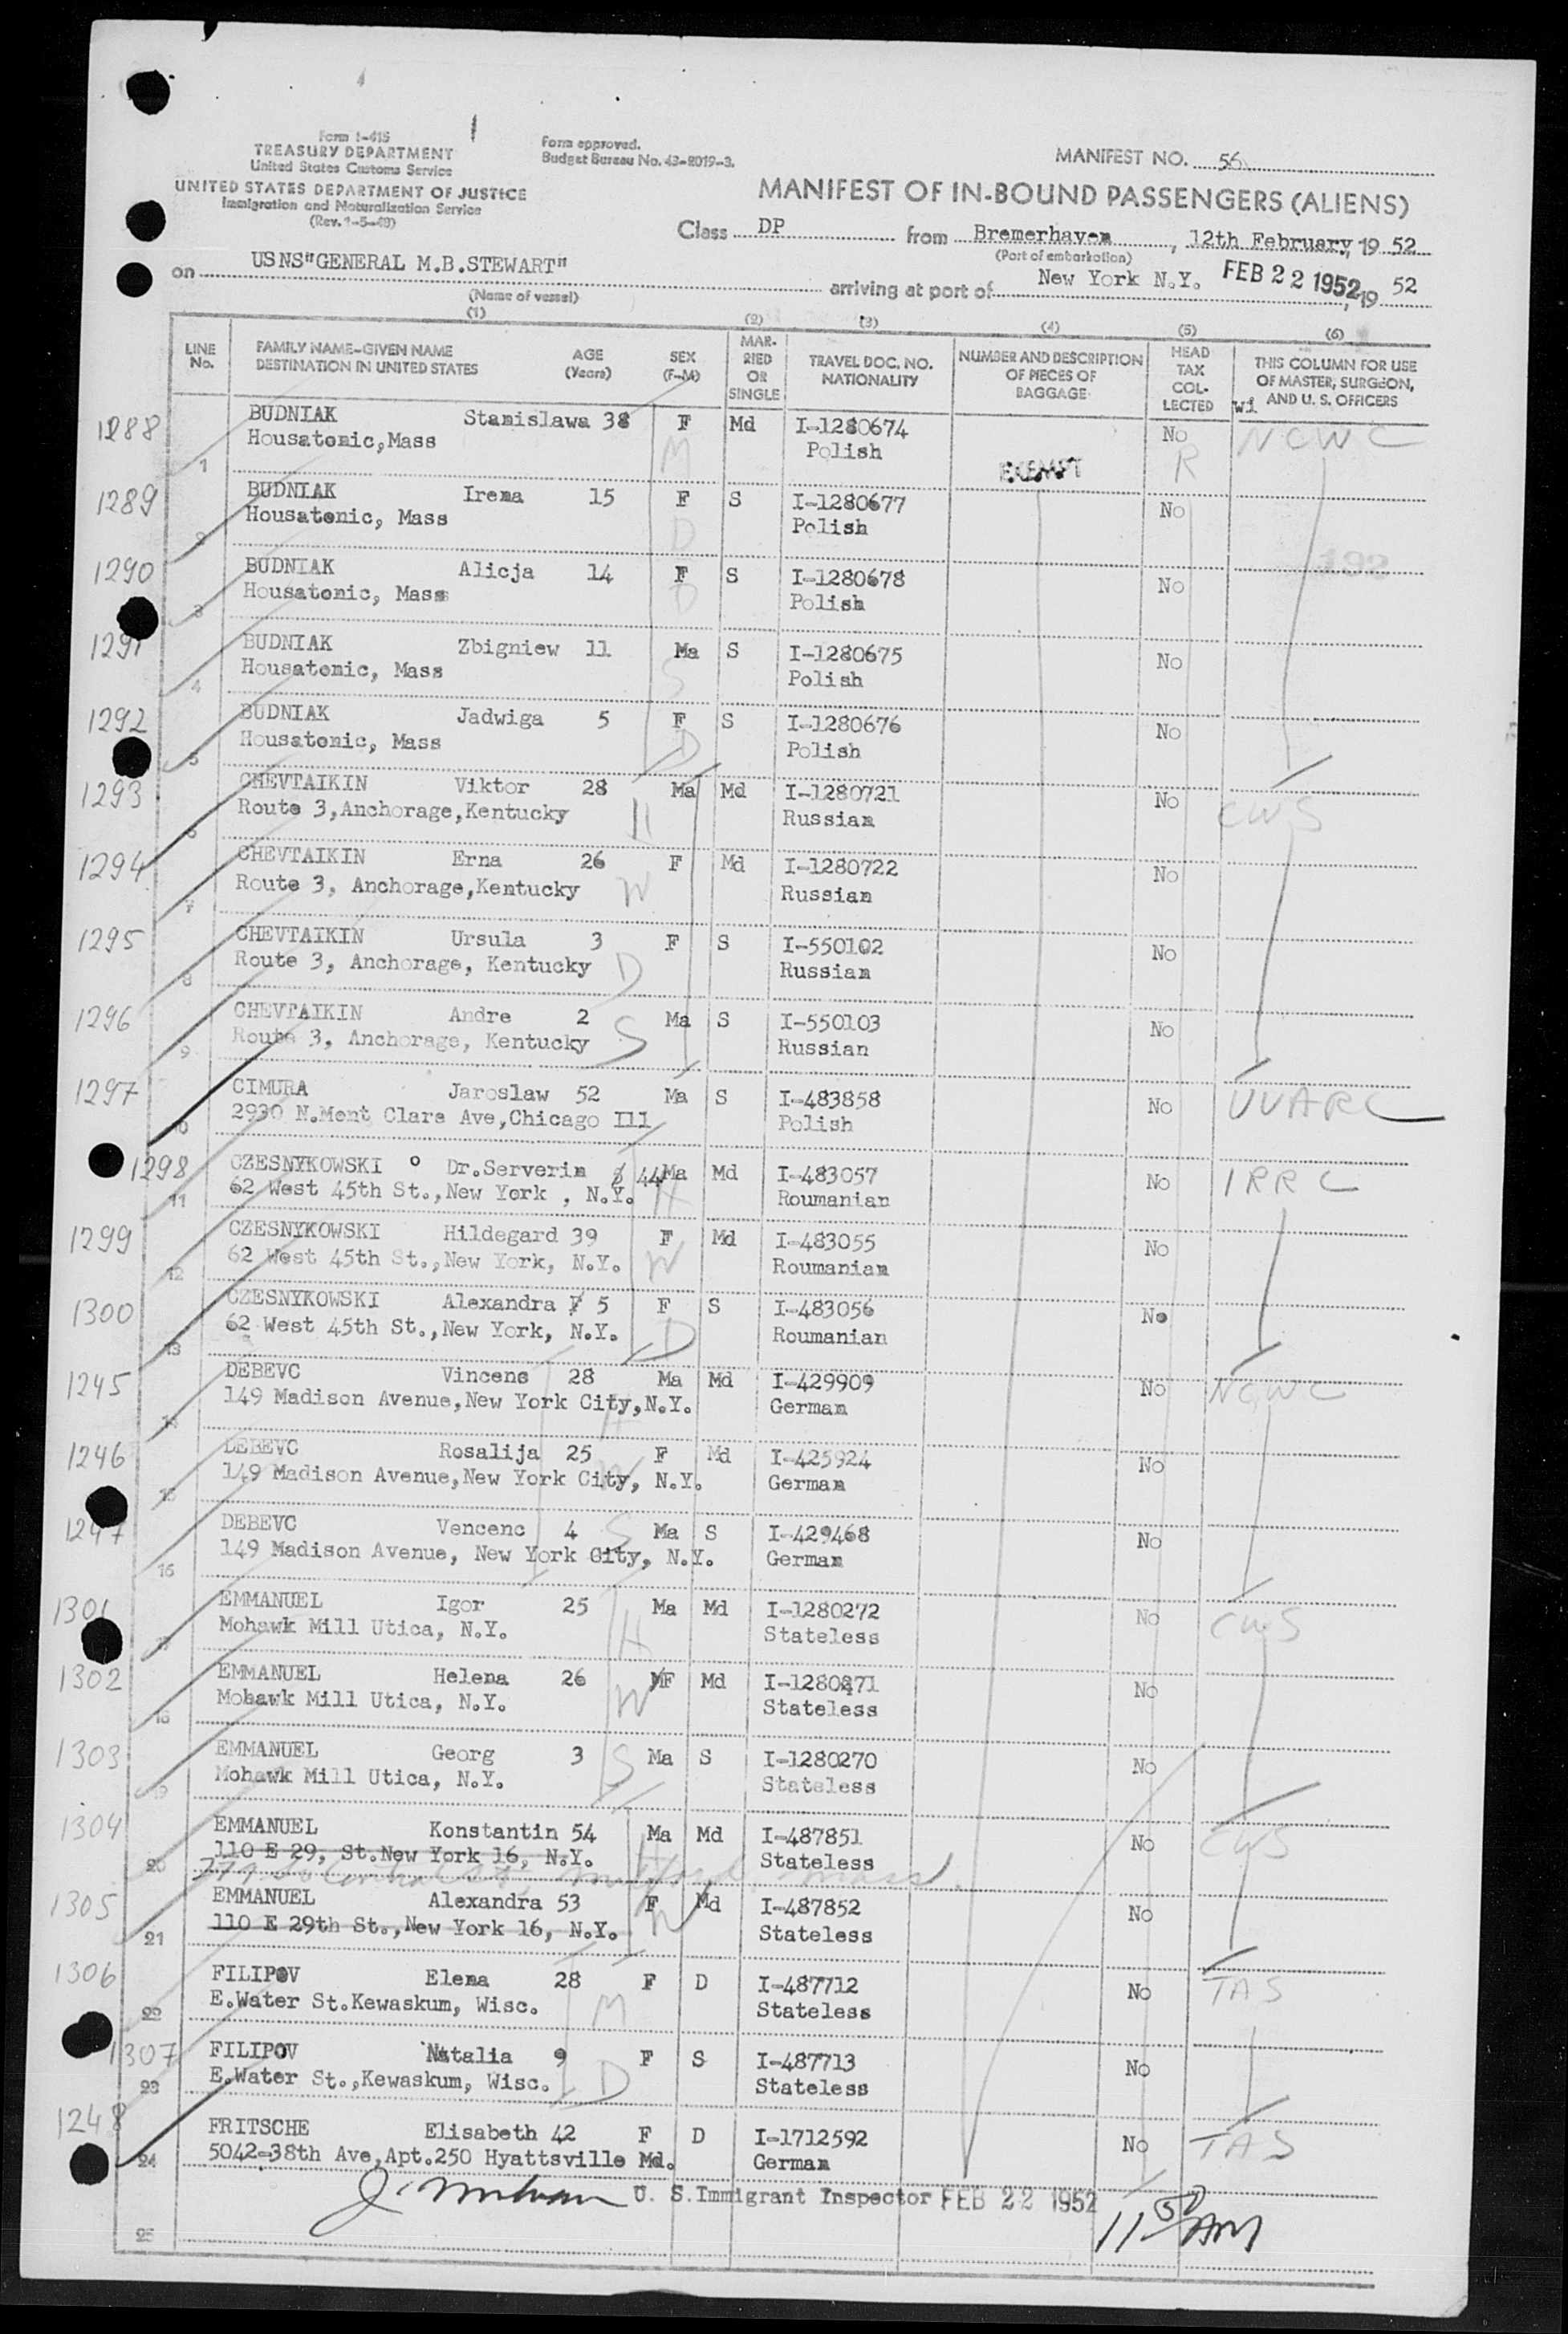 Form I-415
TREASURY DEPARTMENT
United States Customs Service
UNITED STATES DEPARTMENT OF JUSTICE
Immigration and Naturalization Service
(Rev. 1-5-49)
Form approved.
Budget Bureau No. 43-R019-3.
MANIFEST NO. 56
MANIFEST OF IN-BOUND PASSENGERS (ALIENS)
Class DP from Bremerhaven, 12th February, 19 52
(Port of embarkation)
on USNS"GENERAL M.B.STEWART" arriving at port of New York N.Y. FEB 22 1952, 19 52
(Name of vessel)
(1) (2) (3) (4) (5) (6)
LINE No. FAMILY NAME-GIVEN NAME DESTINATION IN UNITED STATES AGE (Years) SEX (F-M) MAR-RIED OR SINGLE TRAVEL DOC. NO. NATIONALITY NUMBER AND DESCRIPTION OF PIECES OF BAGGAGE HEAD TAX COL-LECTED THIS COLUMN FOR USE OF MASTER, SURGEON, AND U. S. OFFICERS
wi
1288 BUDNIAK Stanislawa 38 F Md I-1280674 No NCWC
1 Housatonic,Mass M Polish EXEMPT R
1289 BUDNIAK Irena 15 F S I-1280677 No
2 Housatonic, Mass D Polish
192
1290 BUDNIAK Alicja 14 F S I-1280678 No
3 Housatonic, Mass D Polish
1291 BUDNIAK Zbigniew 11 Ma S I-1280675 No
4 Housatonic, Mass S Polish
1292 BUDNIAK Jadwiga 5 F S I-1280676 No
5 Housatonic, Mass D Polish
1293 CHEVTAIKIN Viktor 28 Ma Md I-1280721 No CWS
6 Route 3,Anchorage,Kentucky H Russian
1294 CHEVTAIKIN Erna 26 F Md I-1280722 No
7 Route 3, Anchorage,Kentucky W Russian
1295 CHEVTAIKIN Ursula 3 F S I-550102 No
8 Route 3, Anchorage, Kentucky D Russian
1296 CHEVTAIKIN Andre 2 Ma S I-550103 No
9 Route 3, Anchorage, Kentucky S Russian
1297 CIMURA Jaroslaw 52 Ma S I-483858 No UUARC
10 2930 N.Mont Clare Ave,Chicago Ill Polish
1298 CZESNYKOWSKI Dr.Serverin 44 Ma Md I-483057 No IRRC
11 62 West 45th St.,New York , N.Y. H Roumanian
1299 CZESNYKOWSKI Hildegard 39 F Md I-483055 No
12 62 West 45th St.,New York, N.Y. W Roumanian
1300 CZESNYKOWSKI Alexandra 5 F S I-483056 No
13 62 West 45th St.,New York, N.Y. D Roumanian
1245 DEBEVC Vincenc 28 Ma Md I-429909 No NCWC
14 149 Madison Avenue,New York City,N.Y. H German
1246 DEBEVC Rosalija 25 F Md I-425924 No
15 149 Madison Avenue,New York City, N.Y. W German
1247 DEBEVC Vencenc 4 S Ma S I-429468 No
16 149 Madison Avenue, New York City, N.Y. German
1301 EMMANUEL Igor 25 Ma Md I-1280272 No CWS
17 Mohawk Mill Utica, N.Y. H Stateless
1302 EMMANUEL Helena 26 F Md I-1280271 No
18 Mohawk Mill Utica, N.Y. W Stateless
1303 EMMANUEL Georg 3 S Ma S I-1280270 No
19 Mohawk Mill Utica, N.Y. Stateless
1304 EMMANUEL Konstantin 54 Ma Md I-487851 No CWS
20 110 E 29, St.New York 16, N.Y. H Stateless
Mass.
1305 EMMANUEL Alexandra 53 F Md I-487852 No
21 110 E 29th St.,New York 16, N.Y. W Stateless
1306 FILIPOV Elena 28 F D I-487712 No TAS
22 E.Water St.Kewaskum, Wisc. M Stateless
1307 FILIPOV Natalia 9 F S I-487713 No
23 E.Water St.,Kewaskum, Wisc. D Stateless
1248 FRITSCHE Elisabeth 42 F D I-1712592 No TAS
24 5042-38th Ave,Apt.250 Hyattsville Md. German
U. S.Immigrant Inspector FEB 22 1952
25 11 50 AM